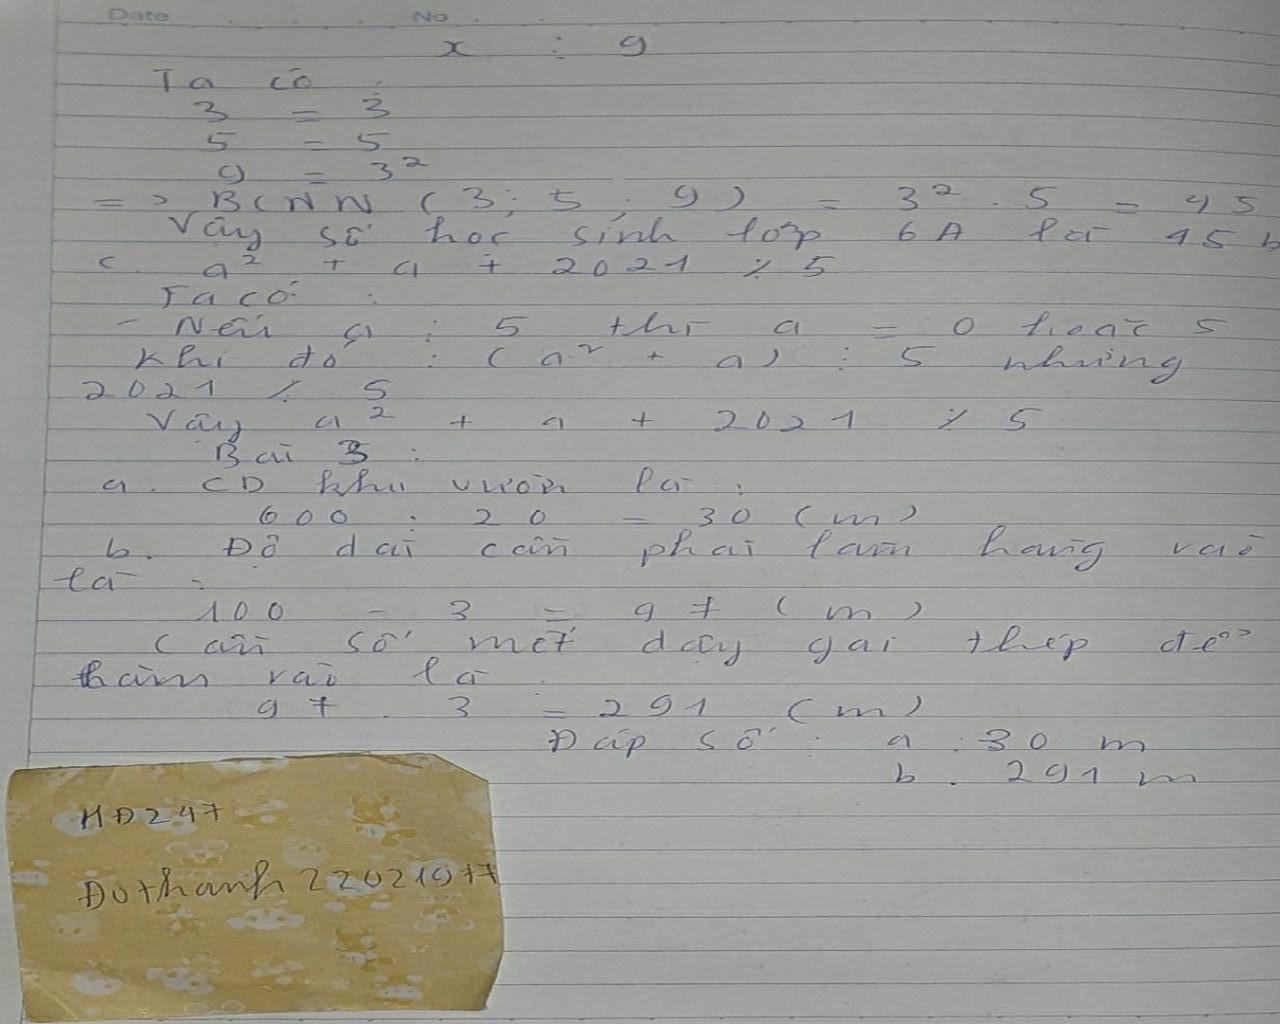 Date No
x ⋮ 9
Ta có :
3 = 3
5 = 5
9 = 3²
=> BCNN (3; 5; 9) = 3² . 5 = 45
Vậy số học sinh lớp 6A là 45 b
c. a² + a + 2021 ⋮̸ 5
Ta có :
- Nếu a ⋮ 5 thì a = 0 hoặc 5
Khi đó : (a² + a) ⋮ 5 nhưng
2021 ⋮̸ 5
Vậy a² + a + 2021 ⋮̸ 5
Bài 3 :
a. CD khu vườn là :
600 : 20 = 30 (m)
b. Độ dài cần phải làm hàng rào
là :
100 - 3 = 97 (m)
Cần số mét dây gai thép để
làm rào là :
97 . 3 = 291 (m)
Đáp số : a : 30 m
b. 291 m
HĐ247
Đuthanh22021977